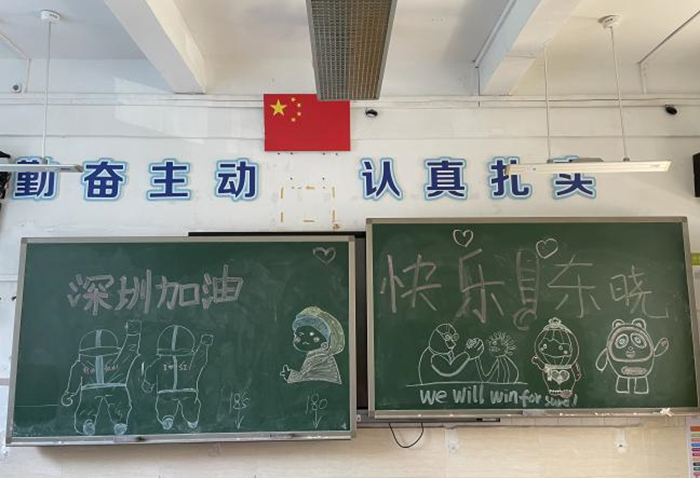 勤奋主动 认真扎实
深圳加油
185 180
快乐 东晓
We will win for sure!